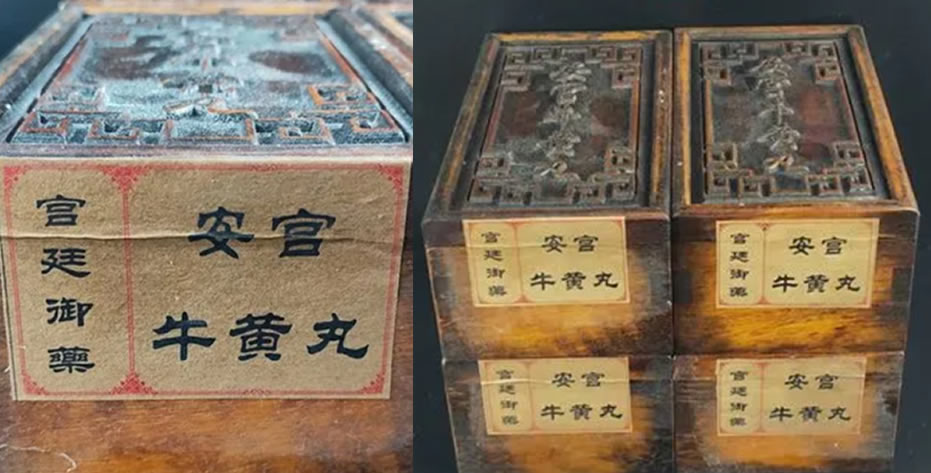 宫廷御藥
安宫
牛黄丸
安宫牛黄丸
安宫牛黄丸
宫廷御藥
安宫
牛黄丸
宫廷御藥
安宫
牛黄丸
宫廷御藥
安宫
牛黄丸
宫廷御藥
安宫
牛黄丸